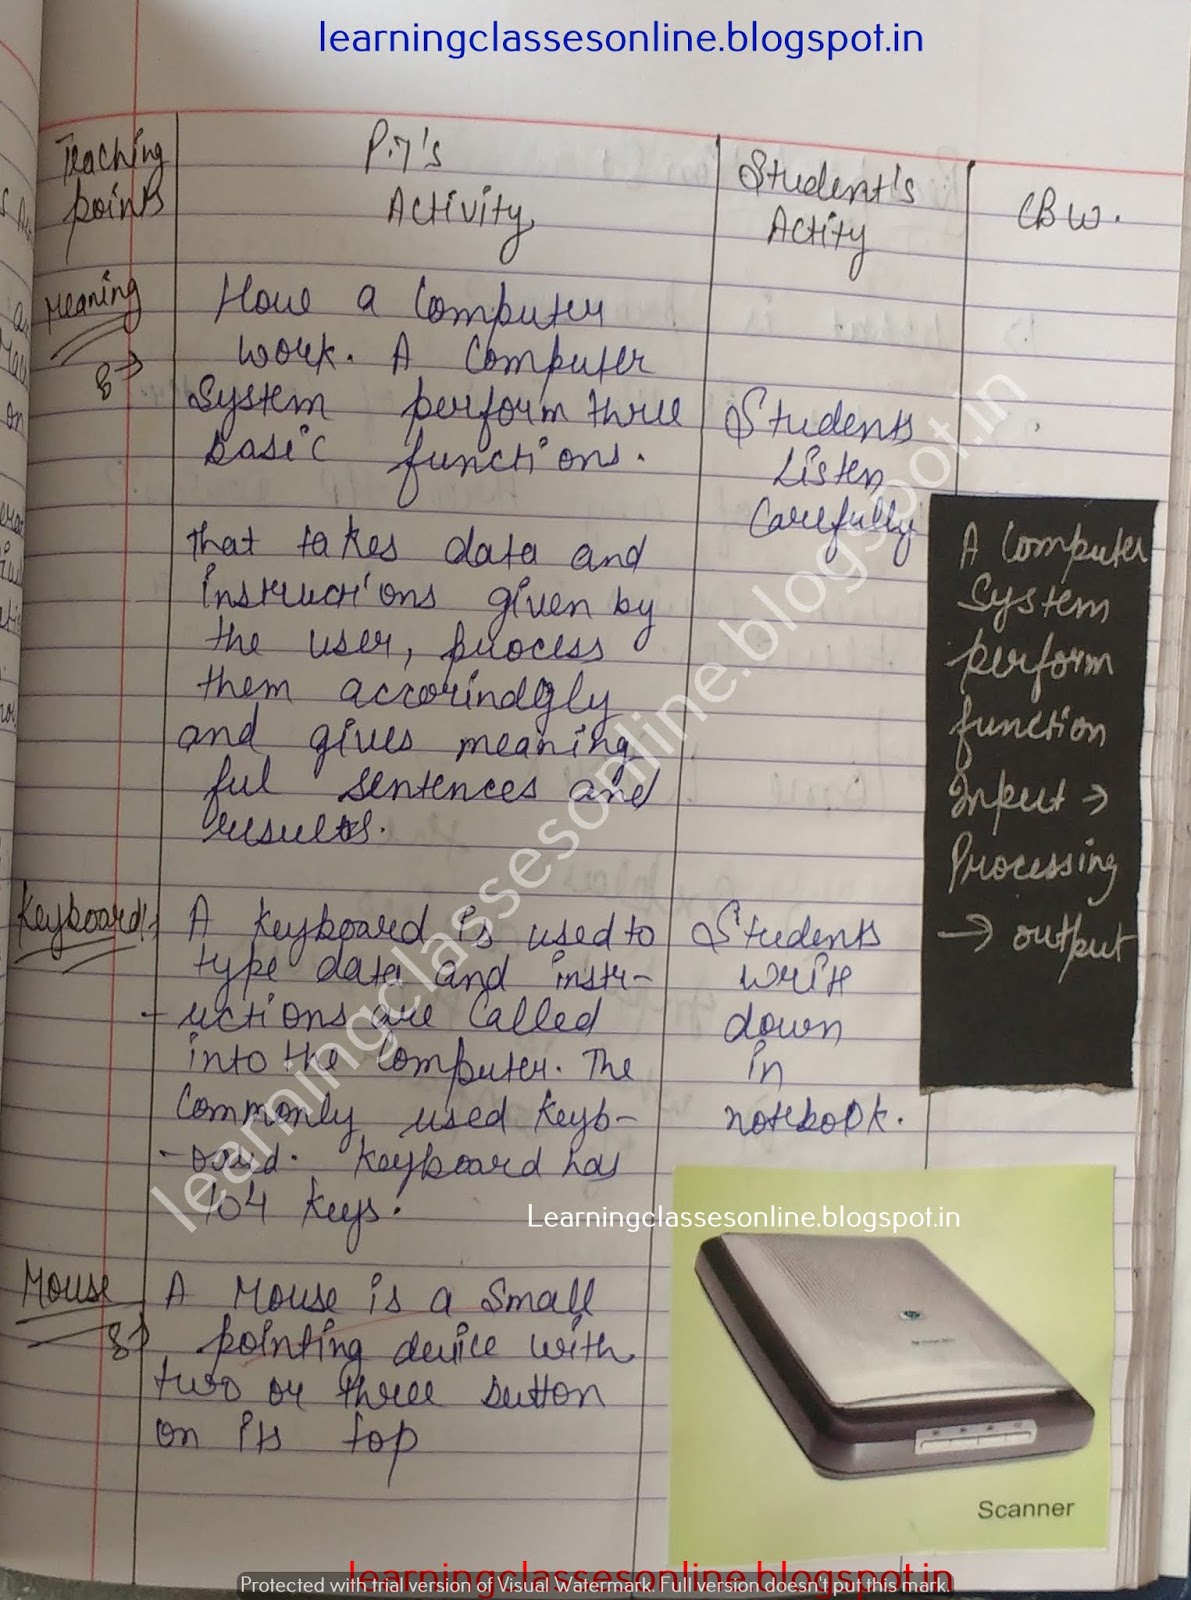 learningclassesonline.blogspot.in
Teaching
points
P.T's
Activity
Student's
Actity
CBW.
Meaning
Howe a Computer
work. A Computer
System perform three
basic functions.
Students
Listen
Carefully
that takes data and
instructions given by
the user, process
them accorindgly
and gives meaning
ful sentences and
results.
A Computer
System
perform
function
Input →
Processing
→ output
Keyboard
A keyboard is used to
type data and instr-
- uctions are called
into the computer. The
Commonly used keyb-
-oard. keyboard has
104 keys.
Students
write
down
in
notebook.
Learningclassesonline.blogspot.in
Mouse
A Mouse is a small
pointing device with
two or three button
on its top
Scanner
learningclassesonline.blogspot.in
learningclassesonline.blogspot.in
Protected with trial version of Visual Watermark. Full version doesn't put this mark.